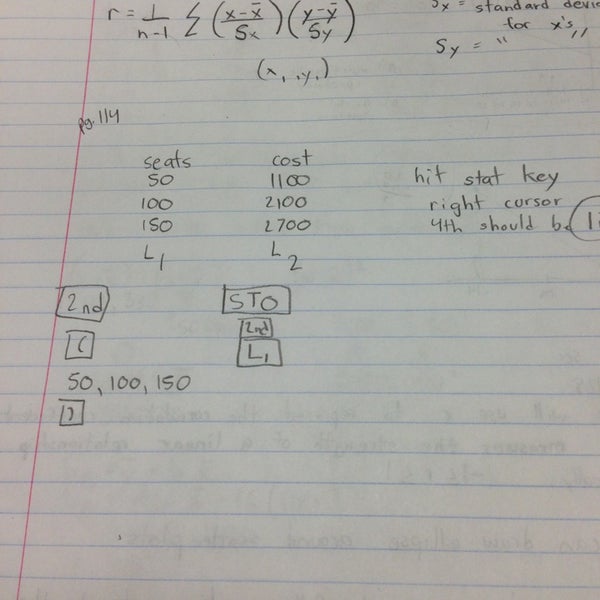 r = 1/(n-1) Σ ((x-x̄)/Sx) ((y-ȳ)/Sy)
Sx = standard
for x's,
Sy = "
(x1, y1)
pg. 114
seats cost
50 1100
100 2100
150 2700
L1 L2
hit stat key
right cursor
4th should be
2nd STO
( 2nd
L1
50, 100, 150
)